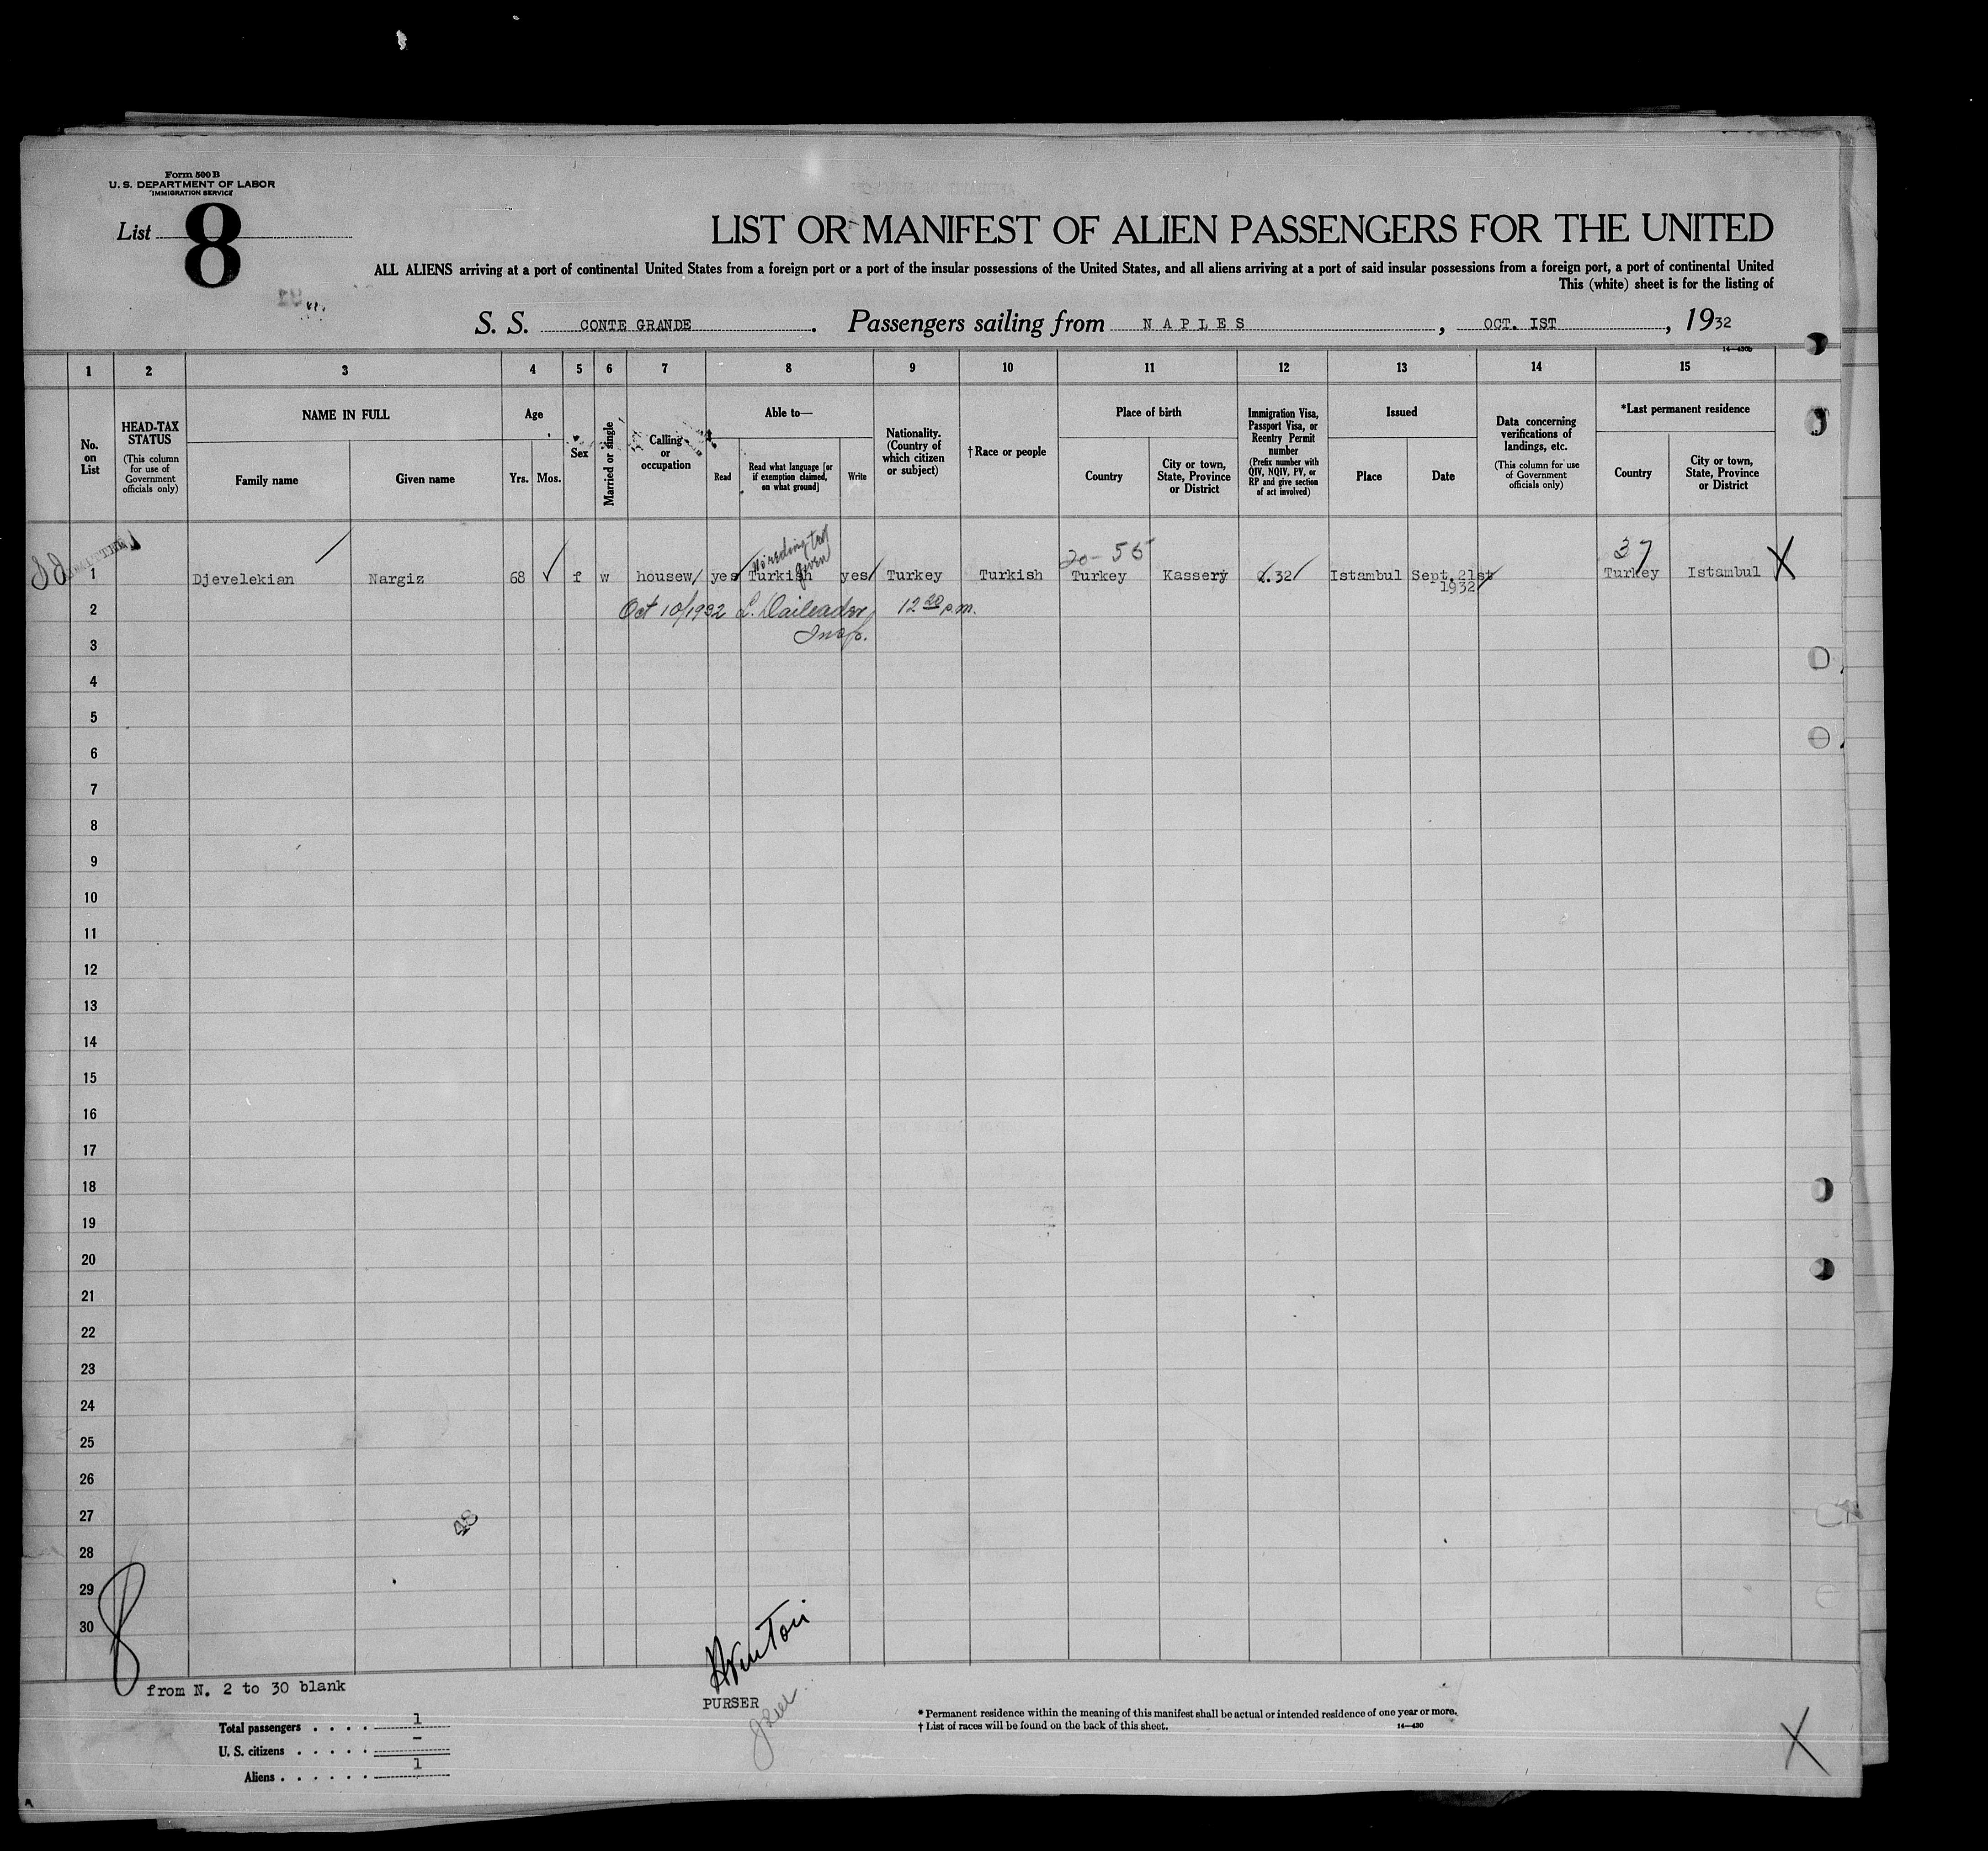 Form 500 B
U. S. DEPARTMENT OF LABOR
IMMIGRATION SERVICE
List 8
LIST OR MANIFEST OF ALIEN PASSENGERS FOR THE UNITED
ALL ALIENS arriving at a port of continental United States from a foreign port or a port of the insular possessions of the United States, and all aliens arriving at a port of said insular possessions from a foreign port, a port of continental United
This (white) sheet is for the listing of
S. S. CONTE GRANDE. Passengers sailing from NAPLES, OCT. IST, 1932
14—430b
1 2 3 4 5 6 7 8 9 10 11 12 13 14 15
No. on List
HEAD-TAX STATUS
(This column for use of Government officials only)
NAME IN FULL
Family name
Given name
Age
Yrs.
Mos.
Sex
Married or single
Calling or occupation
Able to—
Read
Read what language [or if exemption claimed, on what ground]
Write
Nationality. (Country of which citizen or subject)
†Race or people
Place of birth
Country
City or town, State, Province or District
Immigration Visa, Passport Visa, or Reentry Permit number
(Prefix number with QIV, NQIV, PV, or RP and give section of act involved)
Issued
Place
Date
Data concerning verifications of landings, etc.
(This column for use of Government officials only)
*Last permanent residence
Country
City or town, State, Province or District
No reading test given
20-55
37
1 Djevelekian Nargiz 68 ✓ f w housew/ yes Turkish yes Turkey Turkish Turkey Kassery 32 Istambul Sept.21st 1932 Turkey Istambul X
2 Oct 10/1932 12 20 p.m.
Insp.
3
4
5
6
7
8
9
10
11
12
13
14
15
16
17
18
19
20
21
22
23
24
25
26
27
48
28
29
30
8
from N. 2 to 30 blank
PURSER
Total passengers . . . . 1
U. S. citizens . . . . . -
Aliens . . . . . . 1
* Permanent residence within the meaning of this manifest shall be actual or intended residence of one year or more.
† List of races will be found on the back of this sheet.
14—430
X